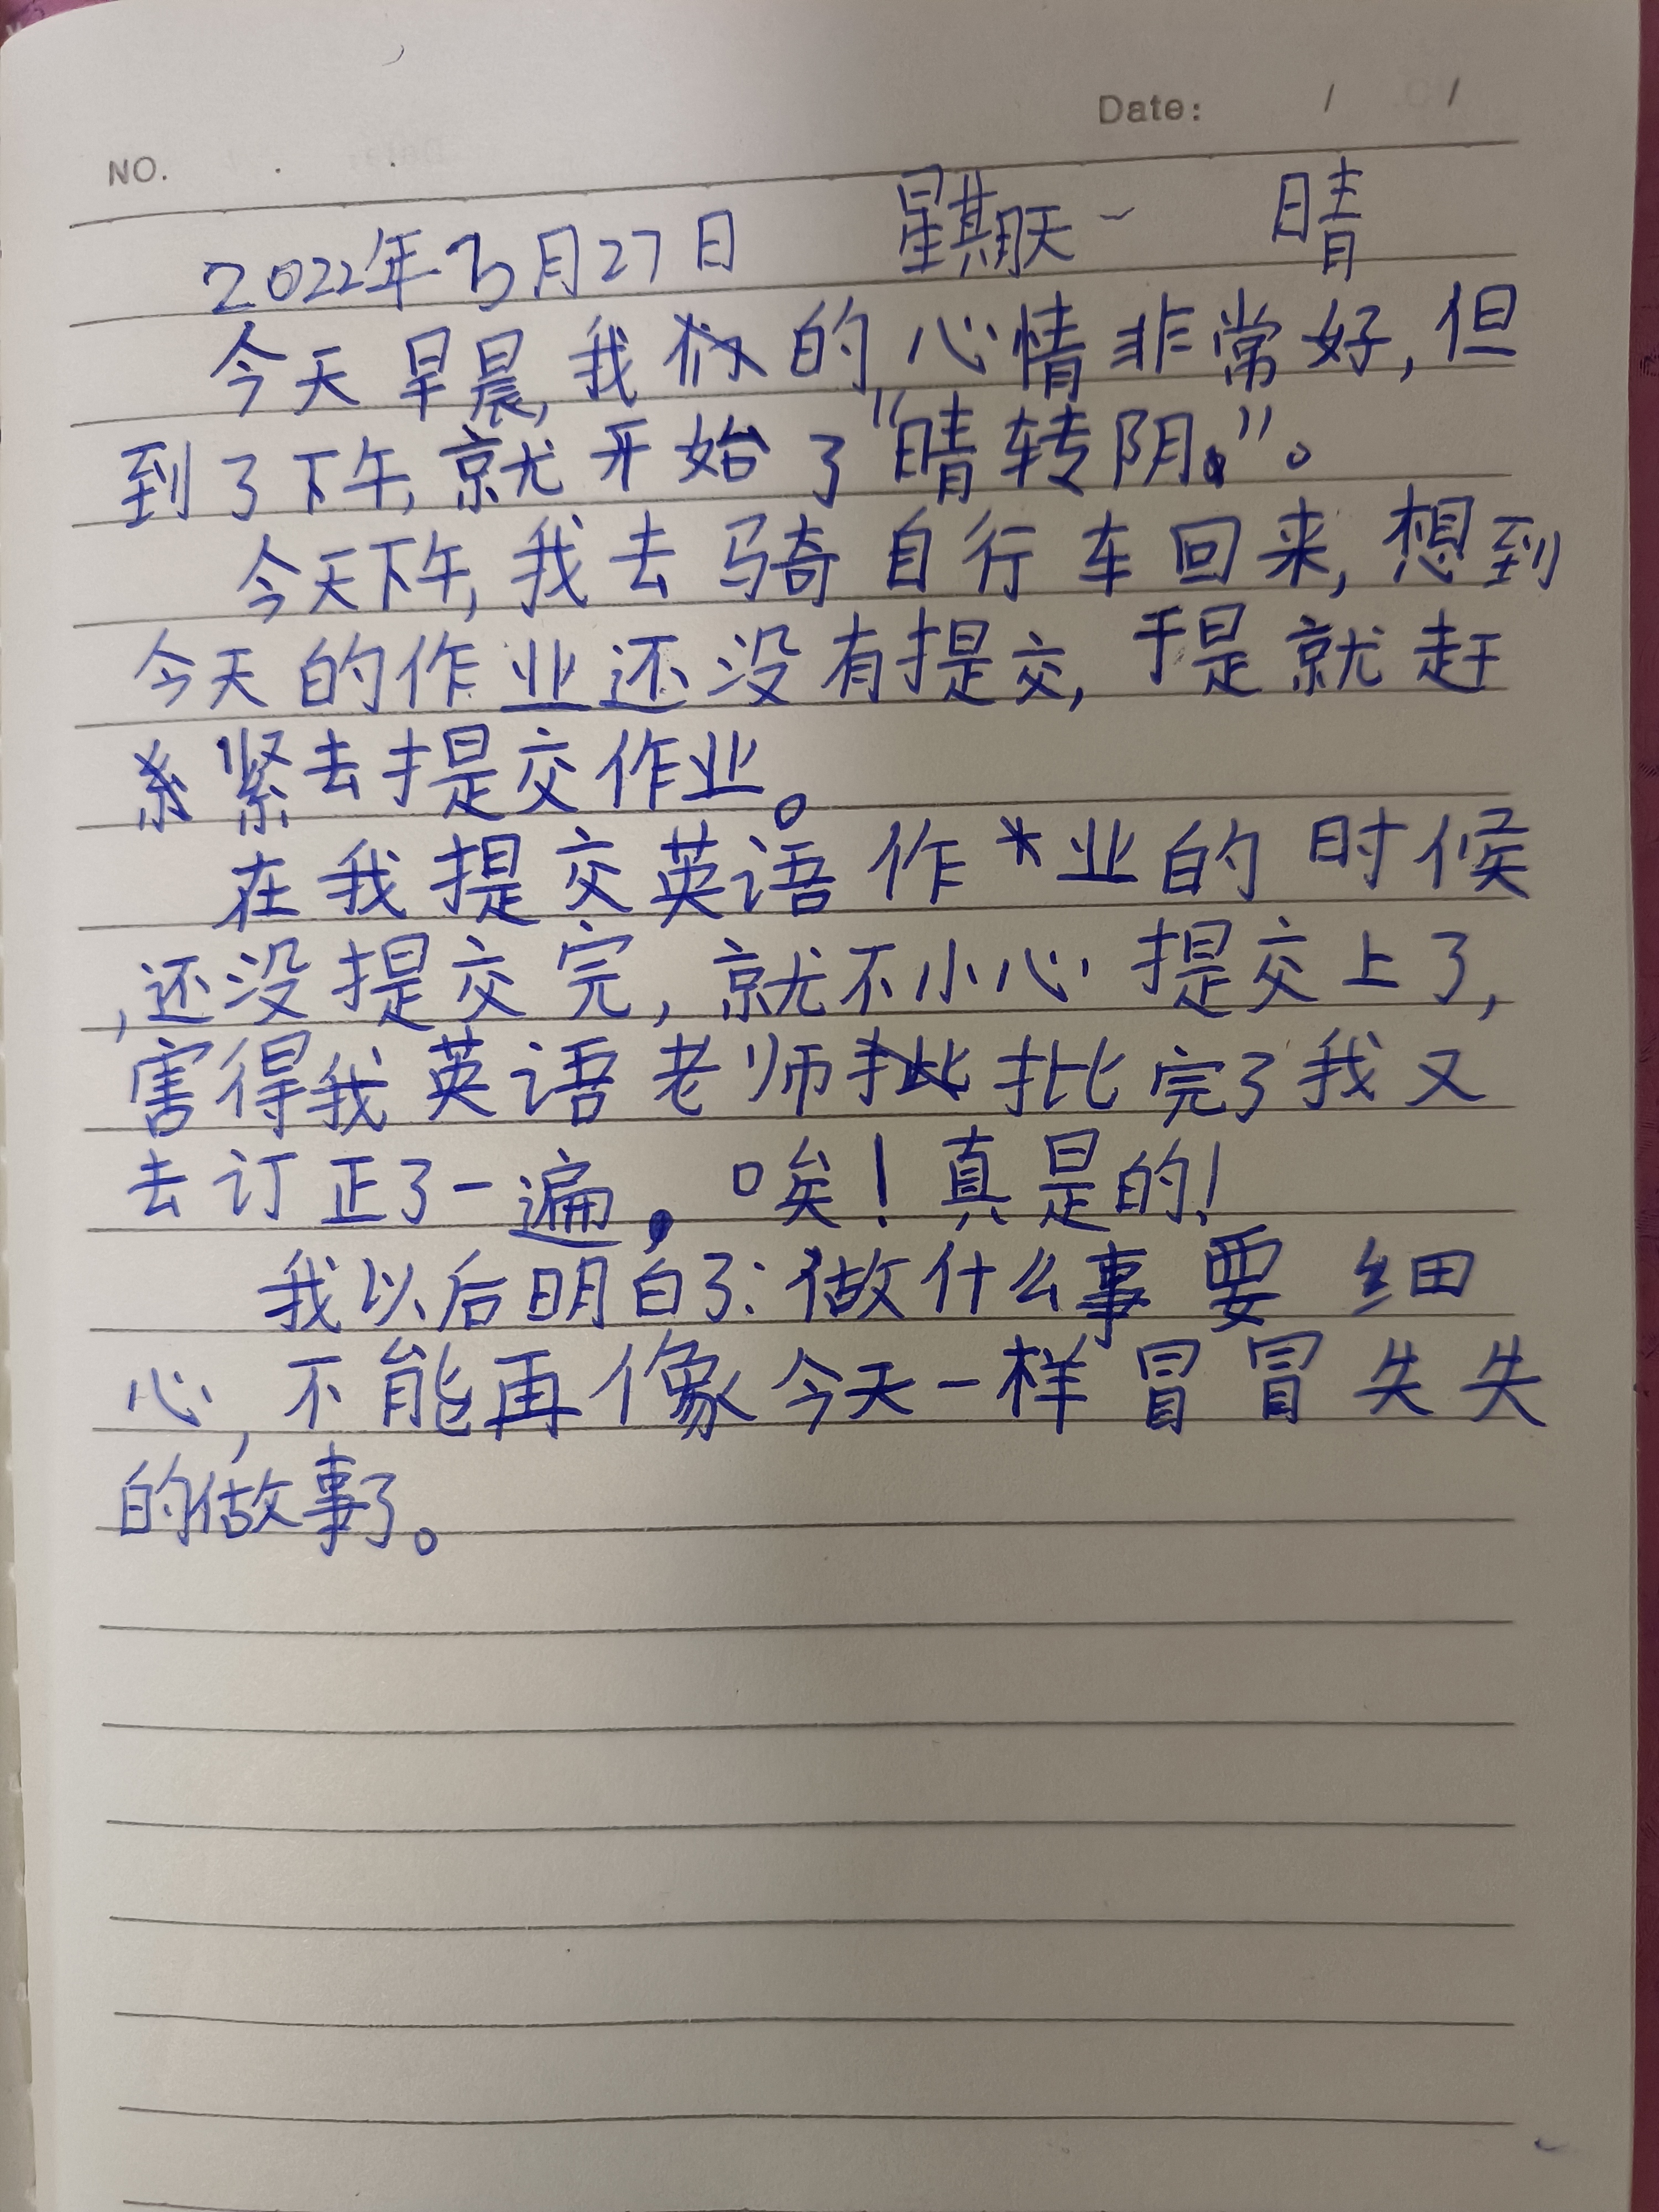 Date: / /
NO. . .
2022年3月27日 星期天 晴
今天早晨,我的心情非常好,但
到了下午,就开始了"晴转阴"。
今天下午,我去骑自行车回来,想到
今天的作业还没有提交,于是就赶
紧去提交作业。
在我提交英语作业的时候
,还没提交完,就不小心提交上了,
害得我英语老师批完了我又
去订正了一遍,唉!真是的!
我以后明白了:做什么事要细
心,不能再像今天一样冒冒失失
的做事了。